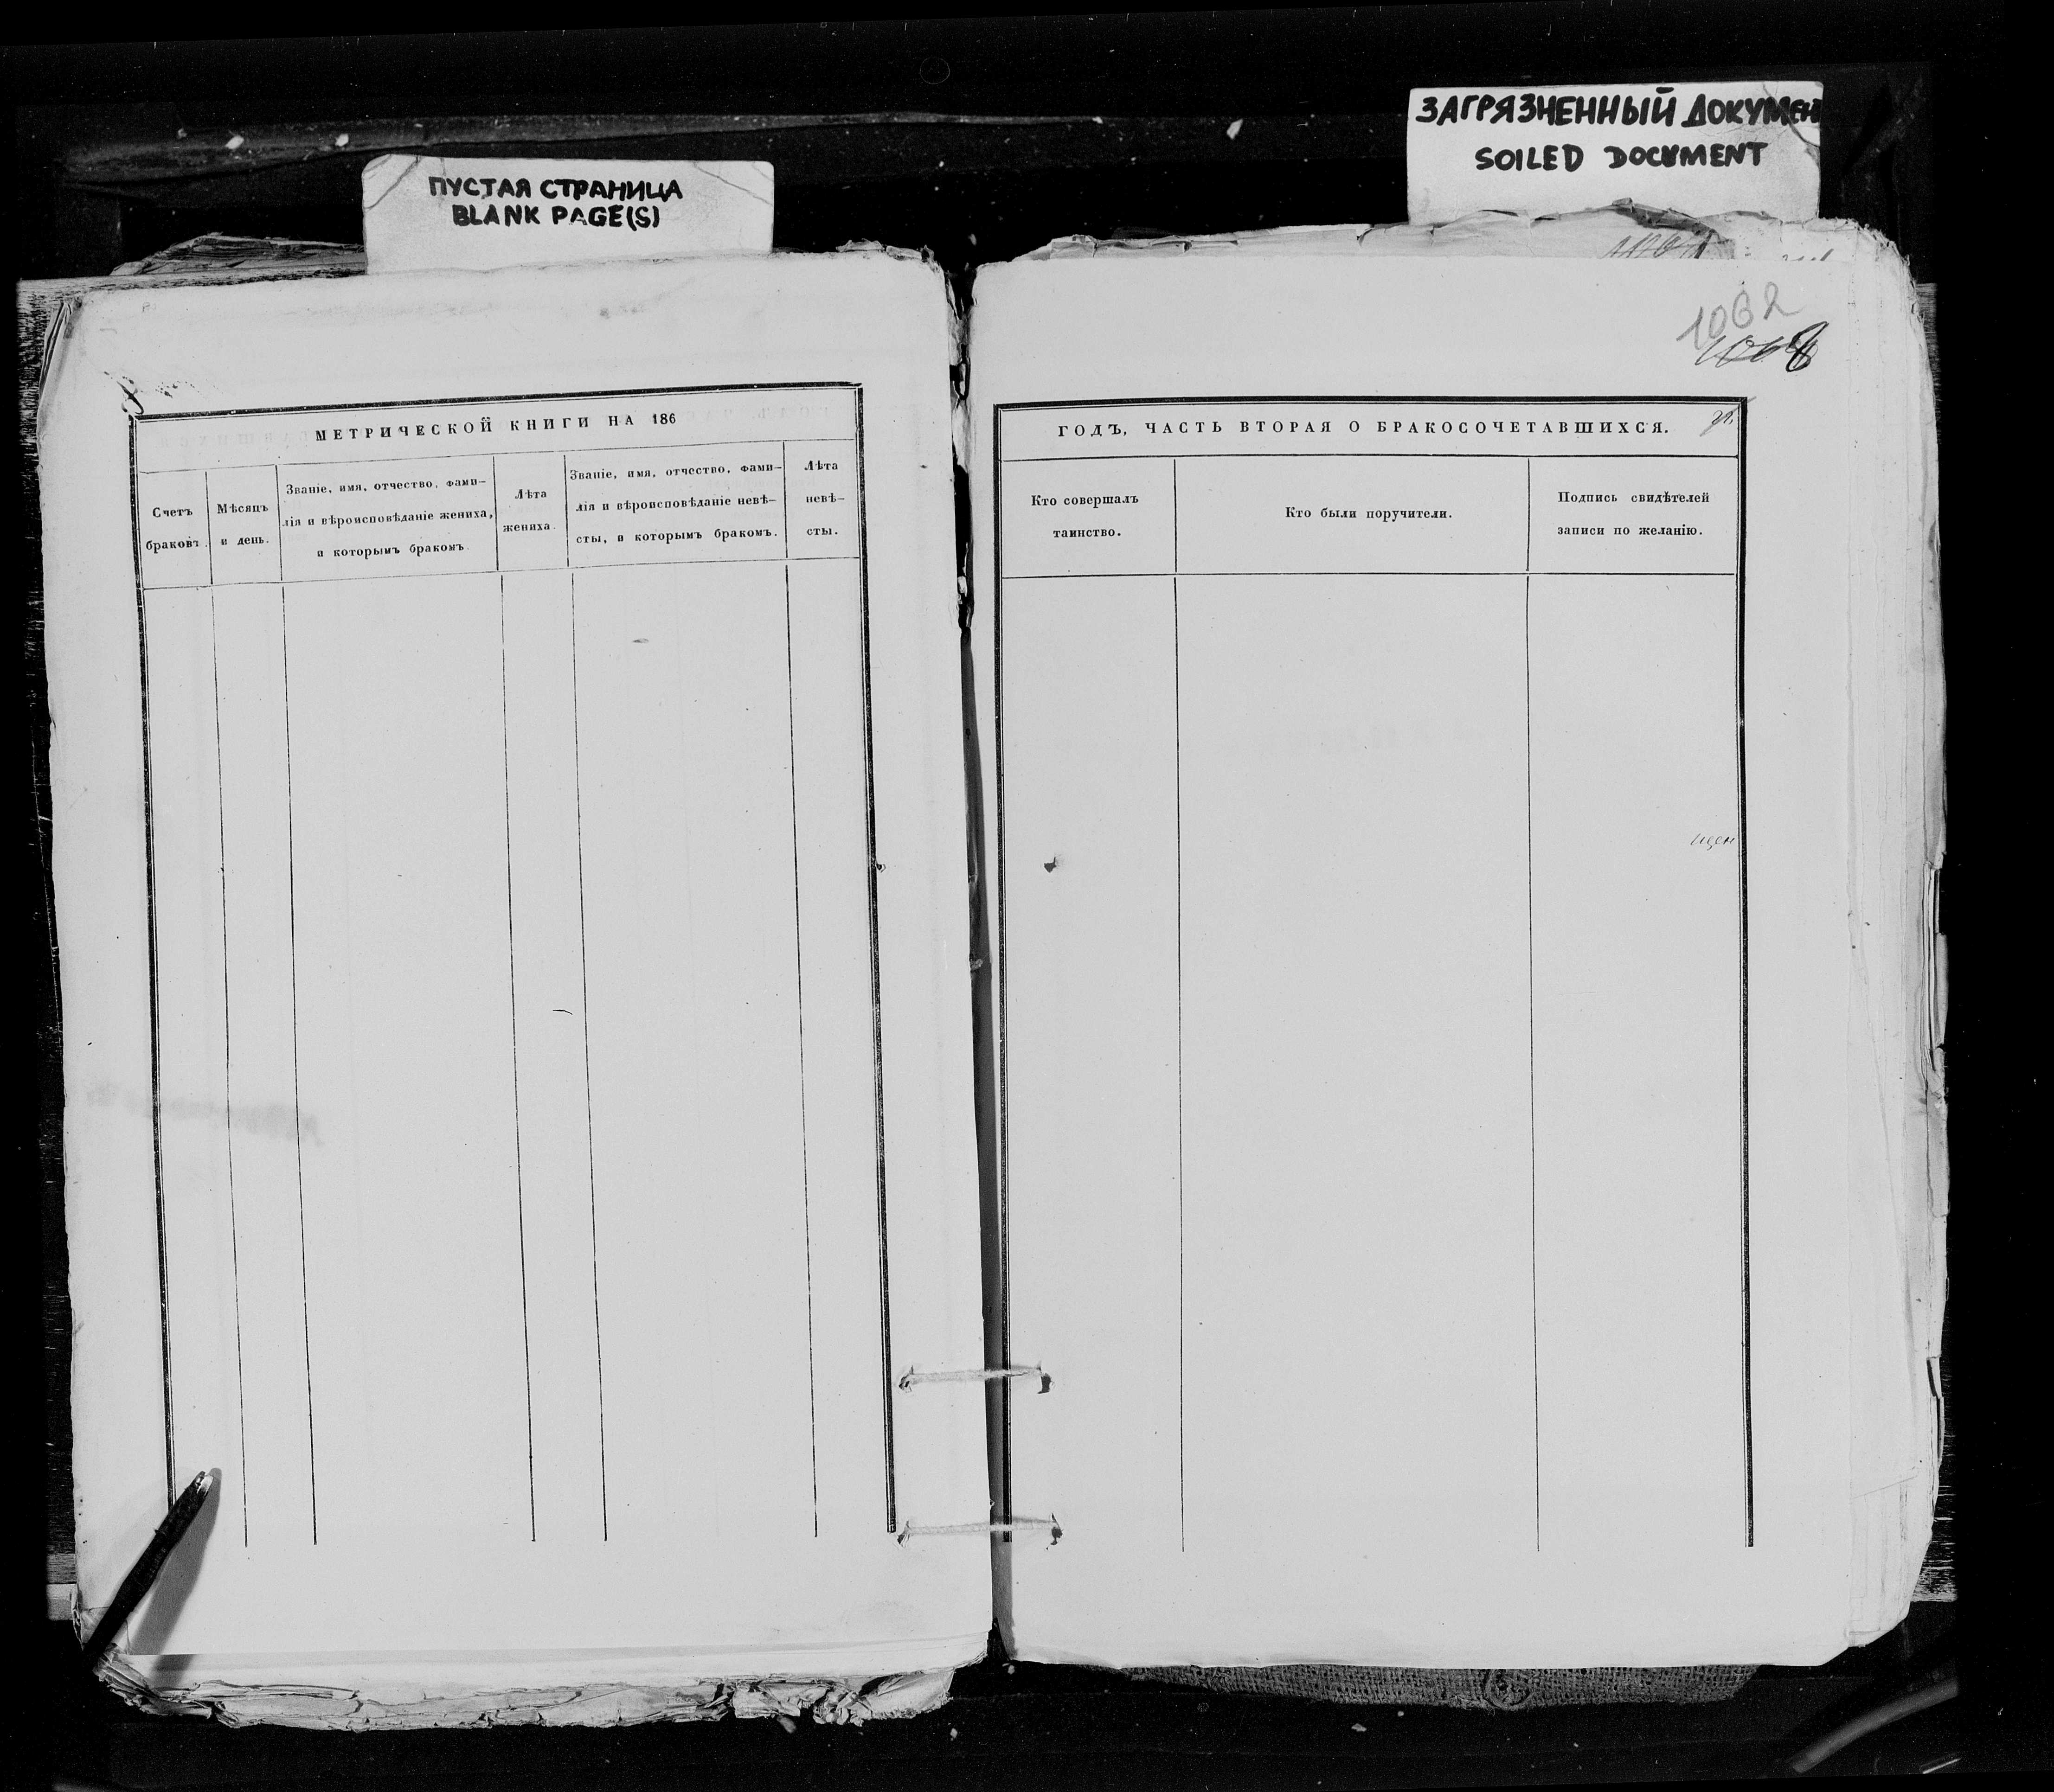 ЗАГРЯЗНЕННЫЙ ДОКУМЕН
SOILED DOCUMENT
ПУСТАЯ СТРАНИЦА
BLANK PAGE(S)
1062
МЕТРИЧЕСКОЙ КНИГИ НА 186
Счетъ
браковъ.
Мѣсяцъ
и день.
Званіе, имя, отчество, фами-
лія и вѣроисповѣданіе жениха,
и которымъ бракомъ.
Лѣта
жениха.
Званіе, имя, отчество, фами-
лія и вѣроисповѣданіе невѣ-
сты, и которымъ бракомъ.
Лѣта
невѣ-
сты.
ГОДЪ, ЧАСТЬ ВТОРАЯ О БРАКОСОЧЕТАВШИХСЯ.
Кто совершалъ
таинство.
Кто были поручители.
Подпись свидѣтелей
записи по желанію.
щен